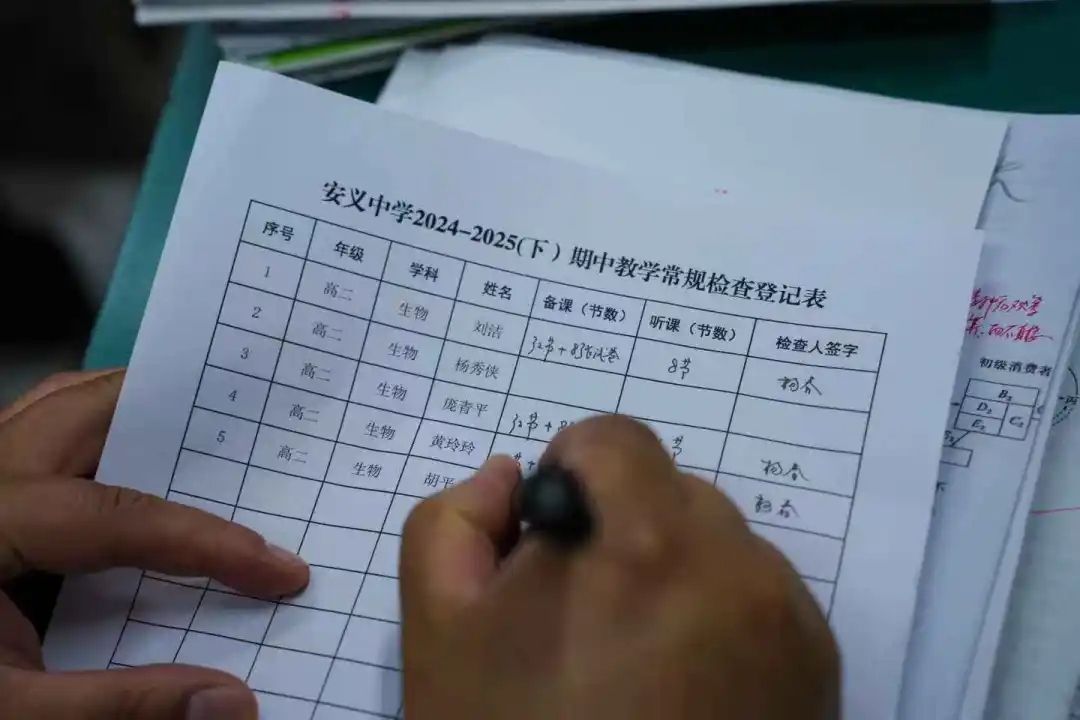 安义中学2024-2025(下)期中教学常规检查登记表
序号 年级 学科 姓名 备课（节数） 听课（节数） 检查人签字
1 高二 生物 刘洁 32节+8张试卷 8节 杨春
2 高二 生物 杨秀侠
3 高二 生物 庞香平 32节+8 节 杨春
4 高二 生物 黄玲玲 节+ 杨春
5 高二 生物 胡平
初级消费者
B₂
D₂ C₂
E₂
丙